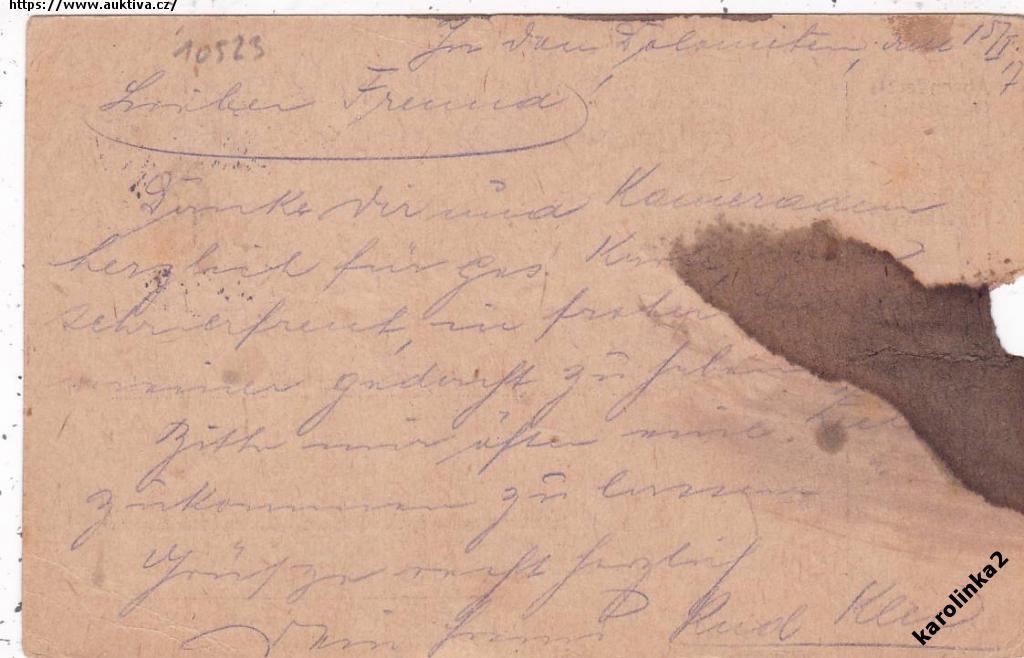 https://www.auktiva.cz/
10523
In den Dolomiten, den 15/II. 17
Lieber Freund!
Danke dir und Kameraden
herzlich für
sehr erfreut, in froher
meiner gedacht zu haben
Bitte mir öfter eine
zukommen zu lassen
Grüße recht herzlich
Dein Freund Rud Klein
karolinka2